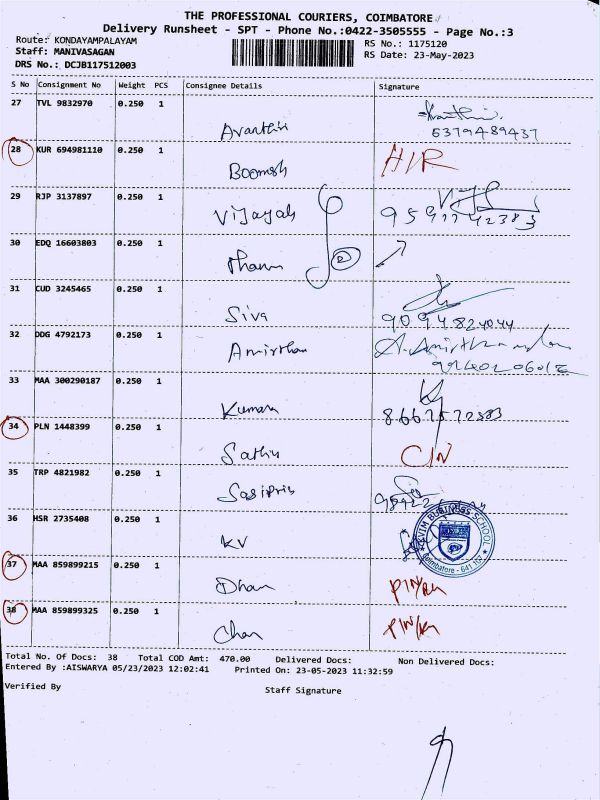 THE PROFESSIONAL COURIERS, COIMBATORE
Delivery Runsheet - SPT - Phone No.:0422-3505555 - Page No.:3
Route: KONDAYAMPALAYAM
RS No.: 1175120
Staff: MANIVASAGAN
RS Date: 23-May-2023
DRS No.: DCJB117512003
S No Consignment No Weight PCS Consignee Details Signature
27 TVL 9832970 0.250 1
Avanthi
5379489437
28 KUR 694981110 0.250 1
Boomesh
29 RJP 3137897 0.250 1
Vijayah
30 EDQ 16603803 0.250 1
31 CUD 3245465 0.250 1
Siva
9094824044
32 DDG 4792173 0.250 1
33 MAA 300290187 0.250 1
Kumar
34 PLN 1448399 0.250 1
35 TRP 4821982 0.250 1
36 HSR 2735408 0.250 1
KV
BUSINESS SCHOOL
Coimbatore - 641 107
37 MAA 859899215 0.250 1
38 MAA 859899325 0.250 1
Total No. Of Docs: 38 Total COD Amt: 470.00 Delivered Docs: Non Delivered Docs:
Entered By :AISWARYA 05/23/2023 12:02:41 Printed On: 23-05-2023 11:32:59
Verified By Staff Signature